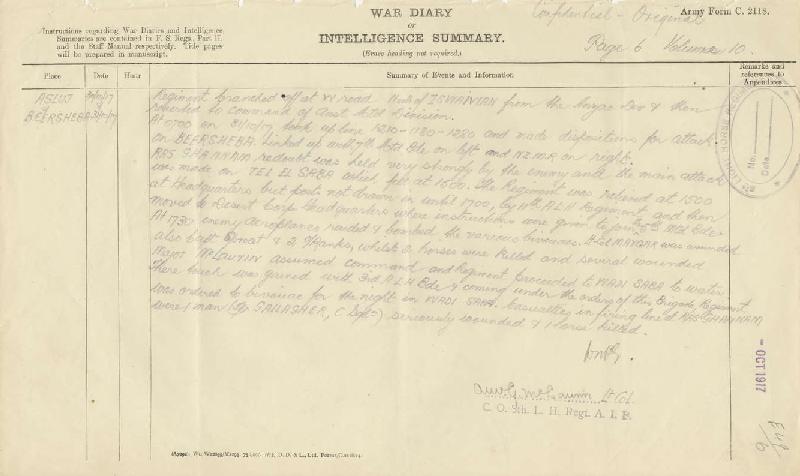 Confidential - Original
Army Form C. 2118.
WAR DIARY
or
INTELLIGENCE SUMMARY.
(Erase heading not required.)
Instructions regarding War Diaries and Intelligence
Summaries are contained in F. S. Regs., Part II.
and the Staff Manual respectively. Title pages
will be prepared in manuscript.
Page 6 Volume 10.
Place
Date
Hour
Summary of Events and Information
Remarks and
references to
Appendices
ASLUJ 30/10/17
BEERSHEBA 31/10/17
Regiment branched off at road of ISWAIWIAN from the Anzac Dev & then
reverted to command of Aust Mtd Division.
At 0700 on 31/10/17 took up line 1210-1180-1220 and made dispositions for attack
on BEERSHEBA. Linked up with 7th Mtd Bde on left and N.Z.M.R. on right.
RAS GHANNAM redoubt was held very strongly by the enemy until the main attack
was made on TEL EL SABA which fell at 1600. The Regiment was relieved at 1500
at Headquarters but posts not drawn in until 1700, by 11th A.L.H Regiment and then
moved to Desert Corps Headquarters where instructions were given to join 5th Mtd Bde.
At 1730 enemy aeroplanes raided & bombed the various bivouacs. Lt-Col MAYGAR was wounded
also Capt & 2 whilst horses were killed and several wounded
Major McLAURIN assumed command and Regiment proceeded to WADI SABA to water
There touch was gained with 3rd A.L.H Bde & coming under the orders of this Brigade, Regiment
was ordered to bivouac for the night in WADI SABA. Casualties in firing line at RAS GHANNAM
were 1 man (Tpr GALLAGHER, C Sqdn) seriously wounded & 1 horse killed.
McLaurin Lt Col.
C. O. 8th. L. H. Regt. A. I. F.
LIGHT HORSE REGIMENT
No.
Date
- OCT 1917